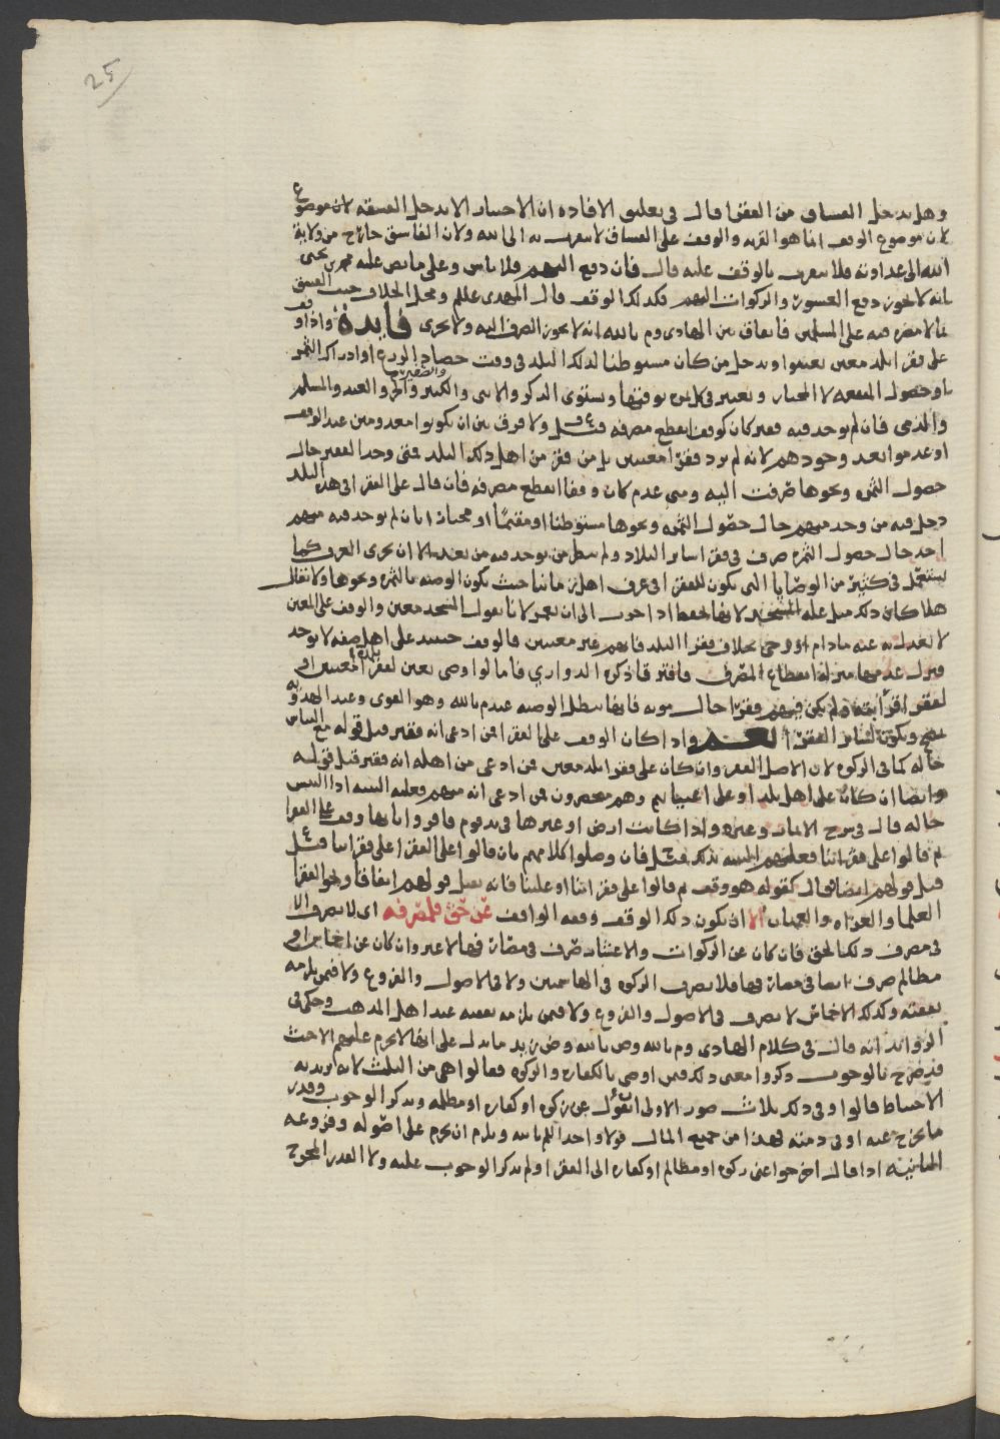 25
وهل يدخل الفساق من الفقرا قال في تعليق الافاده ان الاحسان الا يدخل الفسقه لان موضوع
لان موضوع الوقف انما هو القربه والوقف على الفساق لا يتقرب به الى الله ولان الفاسق خارج من ولاية
الله الى عداوته فلا يتقرب بالوقف عليه قال فان دفع اليهم فلا باس وعلى ما نص عليه م يحيى
بانه لا يجوز دفع العشور والزكوات اليهم فكذلك الوقف قال المهدي علم ومحل الخلاف حيث الفسق
مما لا مضره فيه على المسلمين فاتفاق بين الهادي وم بالله انه لا يجوز الصرف اليه ولا يجزي فايدة واذا وقف
على فقرا بلد معين تعينوا ويدخل من كان مستوطنا لذلك البلد في وقت حصاد الزرع او ادراك الثمر
او حصول المنفعه لا المجتاز ويعتبر في كل ثمره بوقتها ويستوى الذكر والانثى والكبير والصغير والحر والعبد والمسلم
والذمي فان لم يوجد فيه فقير كان كوقف انقطع مصرفه قيل ولا فرق بين ان يكونوا معدومين عند الوقف
او عدموا بعد وجودهم لانه لم يرد فقرا معينين بل من فقر من اهل ذلك البلد فمتى وجد الفقير حال
حصول الثمره ونحوها صرفت اليه ومتى عدم كان وقفا انقطع مصرفه فان قال على الفقرا في هذه البلد
دخل فيه من وجد منهم حال حصول الثمره ونحوها مستوطنا او مقيما او مجتازا فان لم يوجد فيه منهم
احد حال حصول الثمره صرف في فقرا ساير البلاد ولم ينتظر من يوجد فيه من بعد الا ان يجري العرف كما
يستعمل في كثير من الوصايا التي تكون للفقرا في عرف اهل زماننا حيث تكون الوصيه بالثمره ونحوها ولا يقال
هلا كان ذلك مثل غلة المسجد لانها تحفظ اذا خرب الى ان يعمر لانا نقول المسجد معين والوقف على المعين
لا يعدل به عنه مادام او رجي بخلاف فقرا البلد فانهم غير معينين فالوقف حينئذ على اهل صفه لا توجد
فنزل عدمها منزلة انقطاع المصرف فافترقا ذكره الدواري فاما لو اوصى بعين لفقرا بلده المعينين او
لفقرا قرابته ولم يكن فيهم فقرا حال موته فانها تبطل الوصيه عند م بالله وهو القوي وعند الهدويه
يصح ويكون لساير الفقرا واذا كان الوقف على الفقرا فمن ادعى انه فقير قبل قوله مع التباس
حاله كما في الزكوه لان الاصل الفقر وان كان على فقرا بلد معين فمن ادعى من اهله انه فقير قبل قوله
وايضا ان كان على اهل بلد او على اعيانهم وهم منحصرون فمن ادعى انه منهم فعليه البينه اذا التبس
حاله قال في شرح الابانه وغيره واذا كانت ارض او غيرها في يد قوم فاقروا بانها وقف على الفقرا
ثم قالوا على فقرائنا فعليهم البينه بذلك قيل فان وصلوا كلامهم بان قالوا على الفقرا على فقرائنا قيل
قبل قولهم ايضا قال كقوله هو وقف ثم قالوا على فقرائنا او علينا فانه يقبل قولهم اتفاقا ونحو الفقرا
العلما والغزاه والعميان الا ان يكون ذلك الوقف وقفه الواقف عن حق فلمصرفه اي لا يصرف الا
في مصرف ذلك الحق فان كان عن الزكوات والاعشار صرف في مصارفها لا غير وان كان عن اخماس او
مظالم صرف ايضا في مصارفها فلا يصرف الزكوه في الهاشميين ولا في الاصول والفروع ولا فيمن يلزمه
نفقته وكذلك الاخماس لا يصرف في الاصول والفروع ولا فيمن يلزمه نفقته عند اهل المذهب وحكى في
الزوائد انه قال في كلام الهادي وم بالله وص بالله وض زيد ما يدل على انها لا تحرم عليهم الا حيث
قد صرح بالوجوب ذكروا معنى ذلك فيمن اوصى بالكفاره والزكوه فقالوا هي من الثلث لانه يريد به
الاحتياط قالوا وفي ذلك ثلاث صور الاولى ان يقول عن زكوه او كفاره او مظلمه ويذكر الوجوب وقدر
ما يخرج عنه او في ذمته فهذا من جميع المال قولا واحدا للم بالله ويلزم ان يحرم على اصوله وفروعه
الثانيه اذا قال اخرجوا عني زكوه او مظالم او كفاره الى الفقرا ولم يذكر الوجوب عليه ولا القدر المخرج